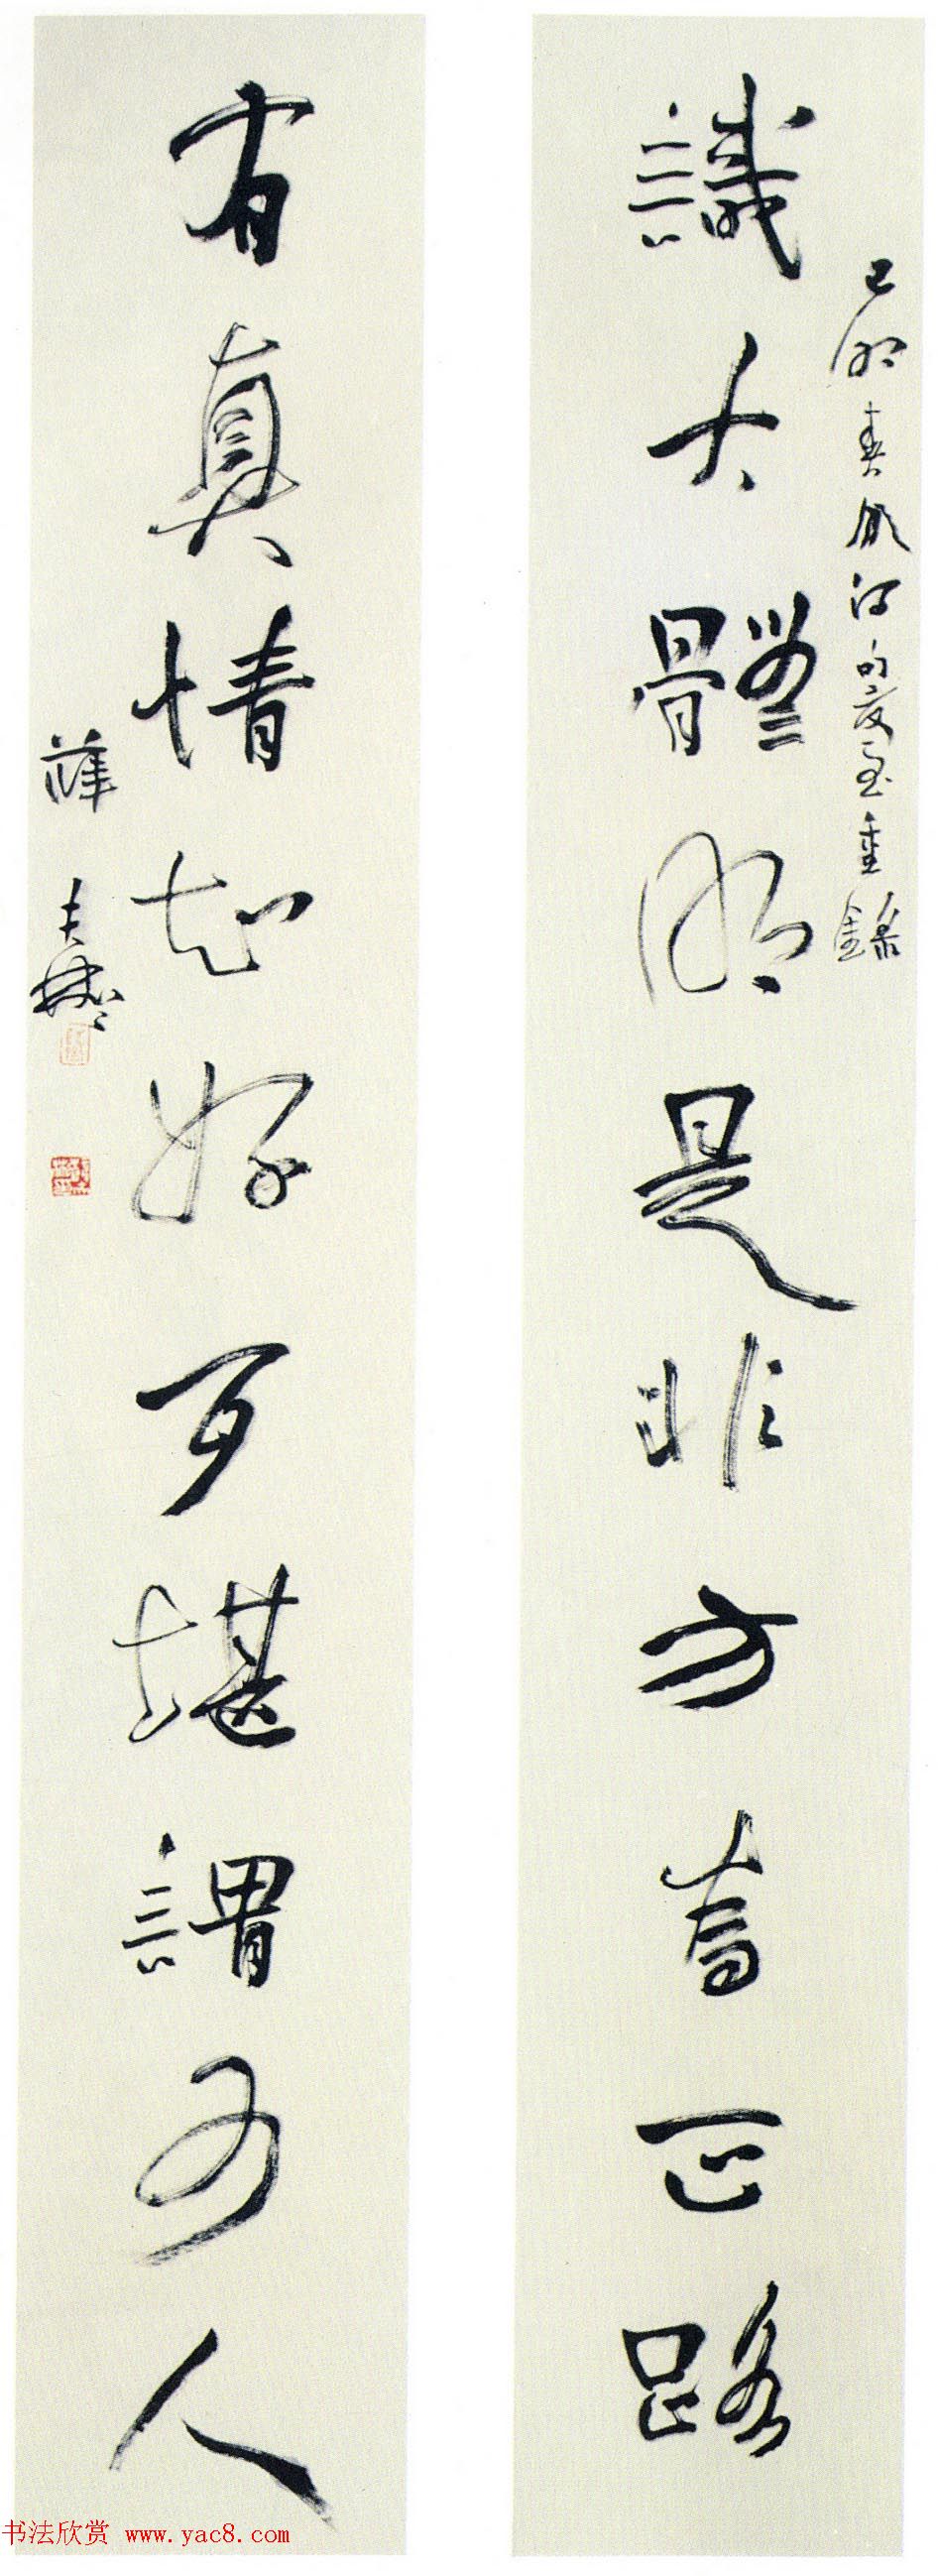 識大體明是非方正路
己卯春得句重錄
有真情知好歹堪謂人
薛夫彬
书法欣赏 www.yac8.com